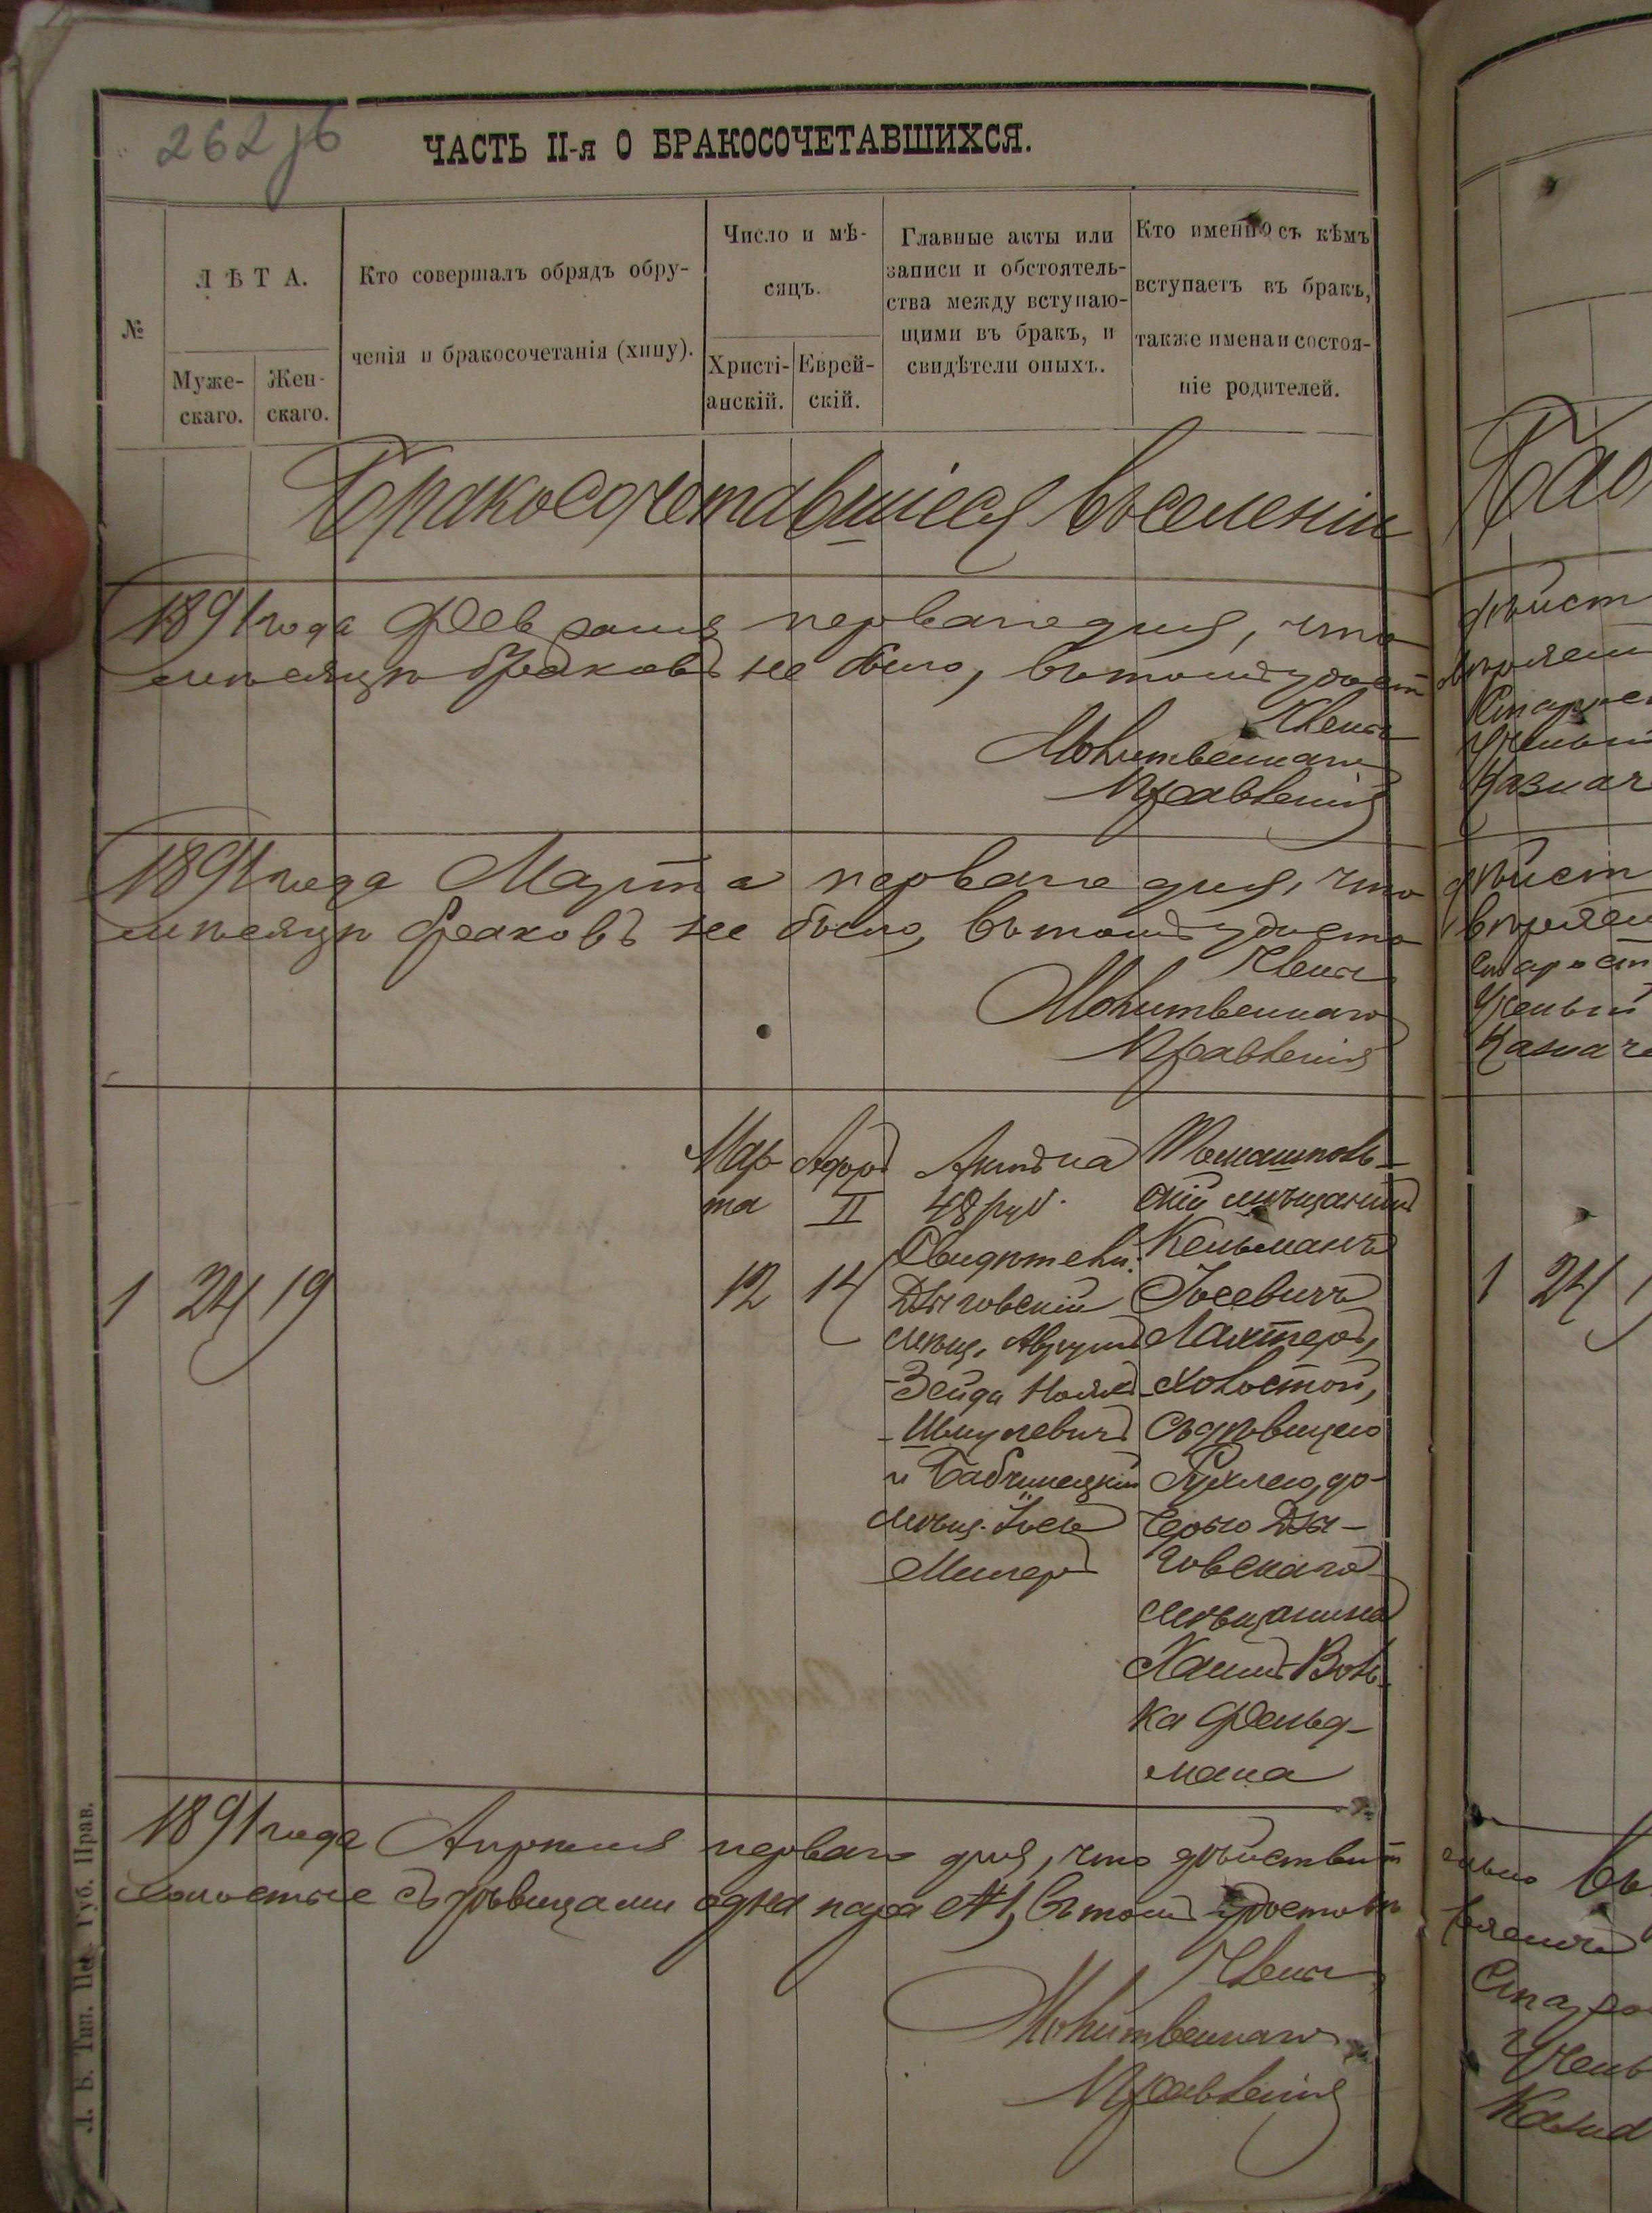 262 об
ЧАСТЬ II-я О БРАКОСОЧЕТАВШИХСЯ.
№
ЛѢТА.
Муже-
скаго.
Жен-
скаго.
Кто совершалъ обрядъ обру-
ченія и бракосочетанія (хипу).
Число и мѣ-
сяцъ.
Христі-
анскій.
Еврей-
скій.
Главные акты или
записи и обстоятель-
ства между вступаю-
щими въ бракъ, и
свидѣтели оныхъ.
Кто именно съ кѣмъ
вступаетъ въ бракъ,
также имена и состоя-
ніе родителей.
Бракосочетавшіеся въ селеніи
1891 года Февраля перваго дня, что
мѣсяцѣ браковъ не было, въ томъ удост
Члены
Молитвеннаго
Правленія
1891 года Марта перваго дня, что
мѣсяцѣ браковъ не было, въ томъ удосто
Члены
Молитвеннаго
Правленія
1
24
19
Мар-
та
12
Адоръ
II
14
48 руб.
Свидѣтели:
Дзыговскій
мѣщ.
Шмулевичъ
и Бабчинецкій
мѣщ. Іось
Милеръ
Томашполь-
скій мѣщанинъ
Кельманъ
Іосевичъ
Лахтеръ,
холостой,
съ дѣвицею
Рухлею, до-
черью Дзы-
говскаго
мѣщанина
Хаимъ Воль-
ка Фельд-
мана
1891 года Апрѣля перваго дня, что дѣйствит
холостые съ дѣвицами одна пара №1, въ томъ удостовѣ
Члены
Молитвеннаго
Правленія
Л. Б. Тип. Под. Губ. Прав.
дѣйст
Казнач
дѣйст
Ученый
Казначе
1
24
ельно въ
Учены